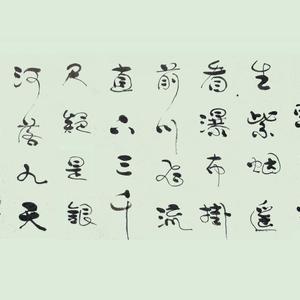 生紫烟遥
看瀑布掛
前川飛流
直下三千
尺疑是銀
河落九天